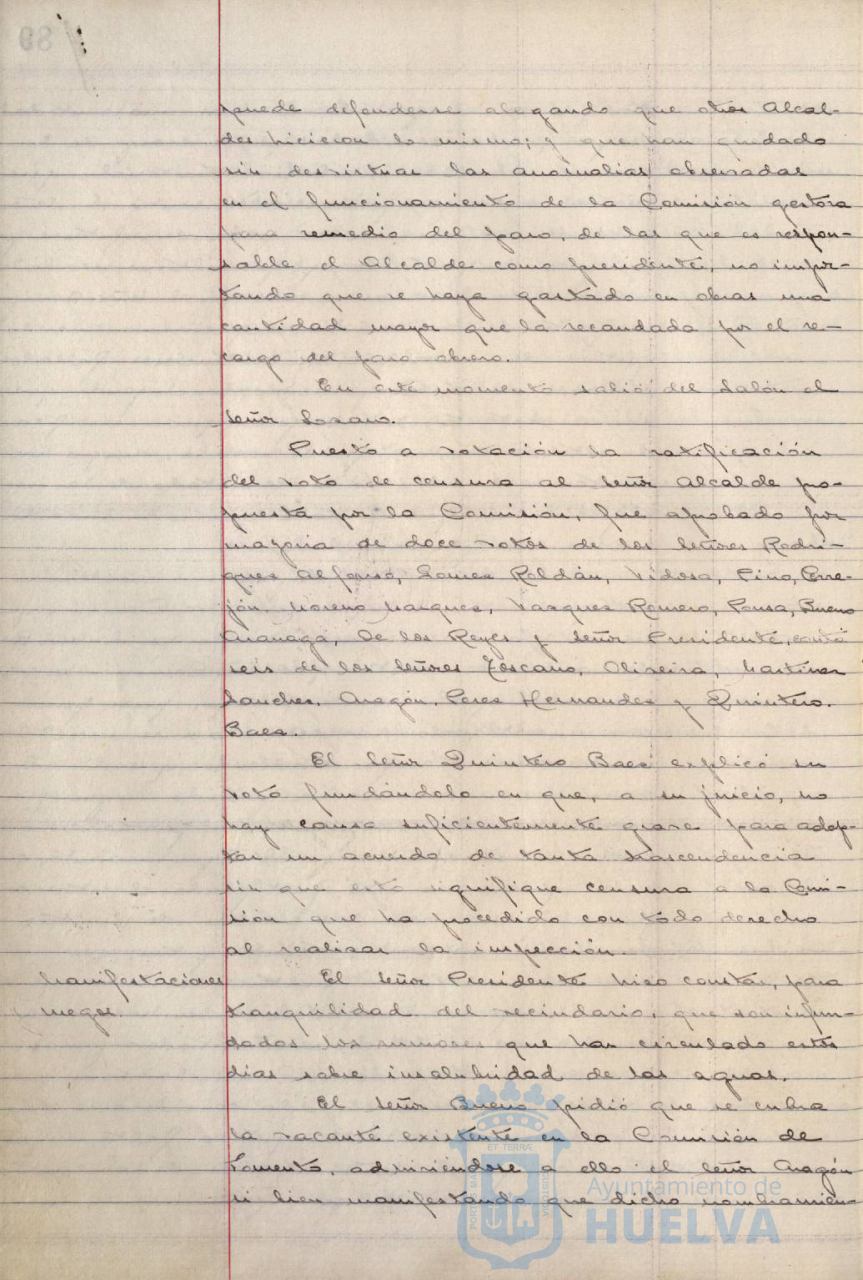 puede defenderse alegando que otros Alcal-
des hicieron lo mismo; y que han quedado
sin desvirtuar las anomalias observadas
en el funcionamiento de la Comisión gestora
para remedio del paro, de las que es respon-
sable el Alcalde como presidente, no impor-
tando que se haya gastado en obras una
cantidad mayor que la recaudada por el re-
cargo del paro obrero.
En este momento salió del Salón el
Señor Lozano.
Puesto a votación la ratificación
del voto de censura al Señor Alcalde pro-
puesta por la Comisión, fue aprobado por
mayoria de doce votos de los Señores Rodri-
guez Alfonso, Gomez Roldán, Vidosa, Pino, Cree-
jón, Moreno Marquez, Vazquez Romero, Ponsa, Bueno
Aranaga, De los Reyes y Señor Presidente, contra
seis de los Señores Toscano, Oliveira, Martinez
Sanchez, Aragón, Perez Hernandez y Quintero
Baez.
El Señor Quintero Baez explicó su
voto fundándolo en que, a su juicio, no
hay causa suficientemente grave para adop-
tar un acuerdo de tanta trascendencia
sin que esto signifique censura a la Comi-
sión que ha procedido con todo derecho
al realizar la inspección.
Manifestaciones
y ruegos.
El Señor Presidente hizo constar, para
tranquilidad del vecindario, que son infun-
dados los rumores que han circulado estos
dias sobre insalubridad de las aguas.
El Señor Bueno pidió que se cubra
la vacante existente en la Comisión de
Fomento, adhiriéndose a ello el Señor Aragón
si bien manifestando que dicho nombramien-
Ayuntamiento de
HUELVA